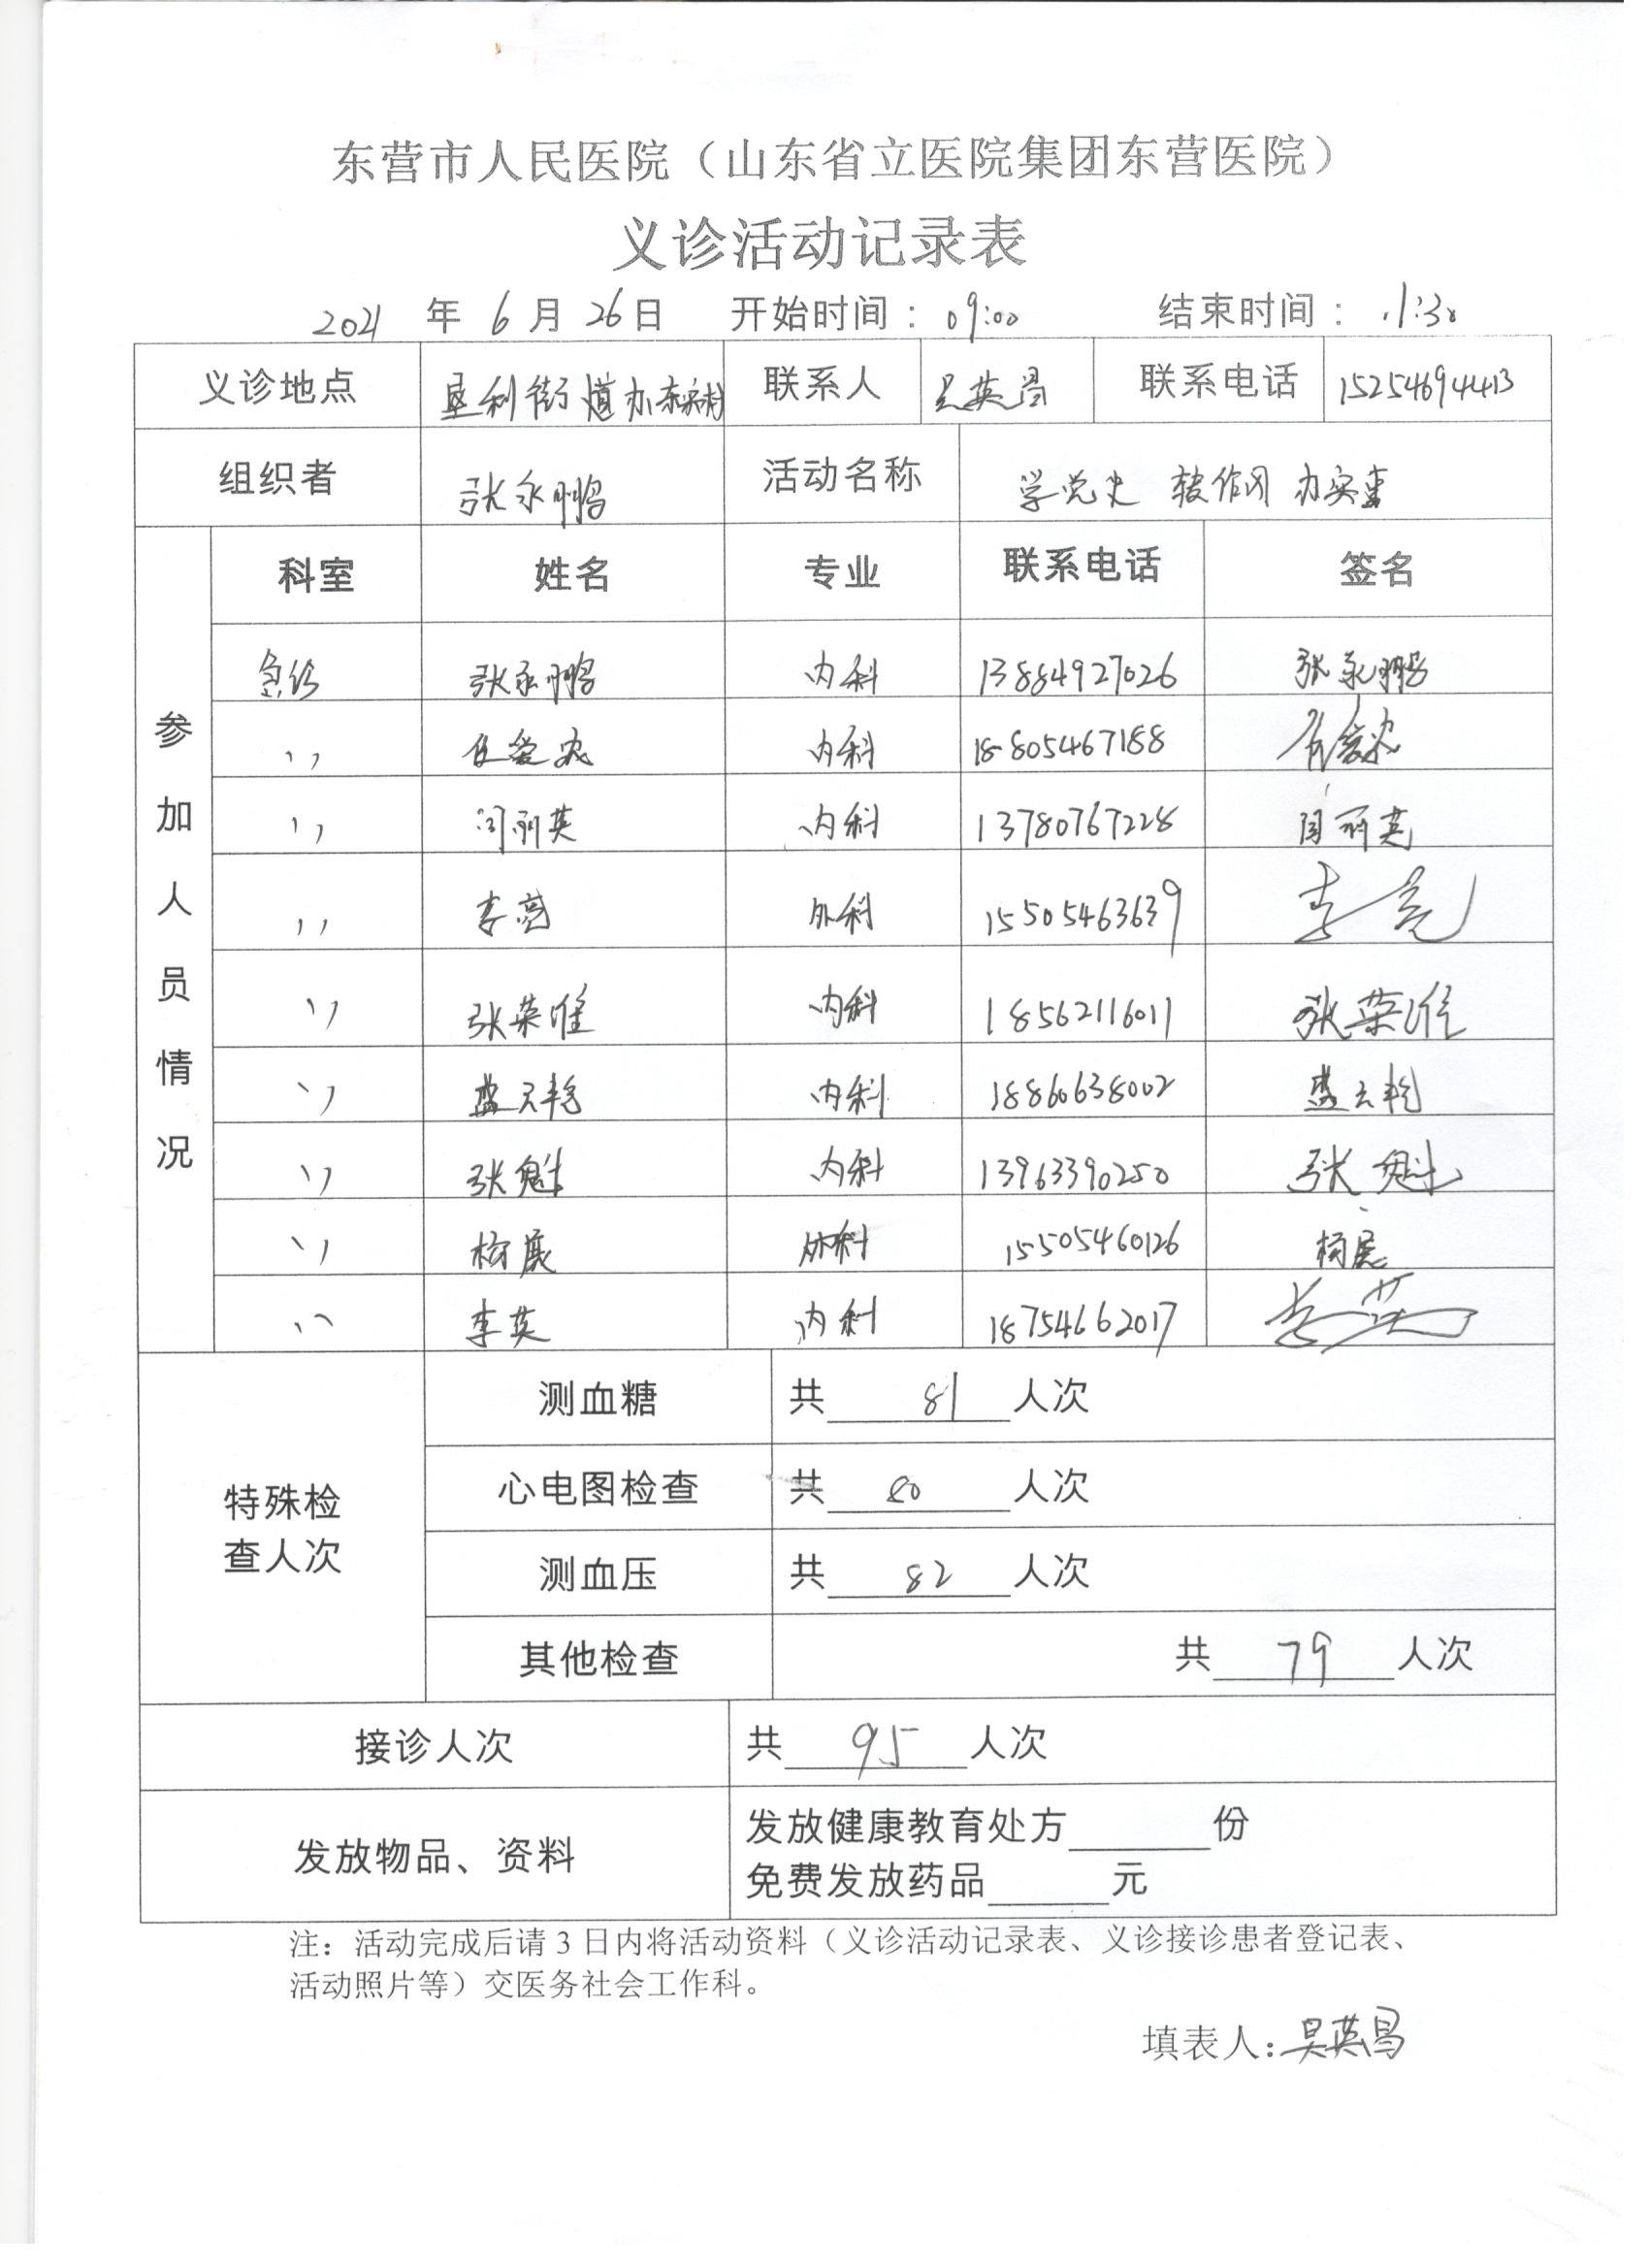 东营市人民医院（山东省立医院集团东营医院）
义诊活动记录表
2021 年 6 月 26 日 开始时间：09:00 结束时间：11:30
义诊地点 垦利街道办 联系人 吴英昌 联系电话 15254694413
组织者 张永鹏 活动名称 学党史 转作风 办实事
参加人员情况
科室 姓名 专业 联系电话 签名
急诊 张永鹏 内科 13884927026 张永鹏
〃 任爱农 内科 18805467188 任爱农
〃 闫丽英 内科 13780767228 闫丽英
〃 李亮 外科 15505463639 李亮
〃 张荣准 内科 18562116011 张荣准
〃 盖云艳 内科 18860638002 盖云艳
〃 张魁 内科 13963390250 张魁
〃 杨展 外科 15505460126 杨展
〃 李英 内科 18754662017 李英
特殊检查人次
测血糖 共 81 人次
心电图检查 共 80 人次
测血压 共 82 人次
其他检查 共 79 人次
接诊人次 共 95 人次
发放物品、资料
发放健康教育处方 份
免费发放药品 元
注：活动完成后请 3 日内将活动资料（义诊活动记录表、义诊接诊患者登记表、
活动照片等）交医务社会工作科。
填表人：吴英昌